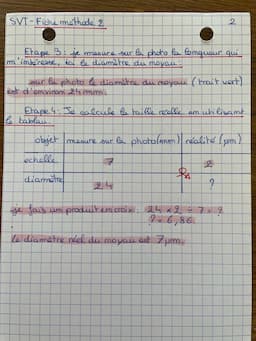 SVT - Fiche méthode 2 2
Etape 3 : je mesure sur la photo la longueur qui
m'intéresse, ici le diamètre du noyau.
sur la photo le diamètre du noyau (trait vert)
est d'environ 24 mm.
Etape 4 : Je calcule la taille réelle en utilisant
le tableau.
objet | mesure sur la photo (mm) | réalité (µm)
echelle 7 2
diamètre 24 ?
je fais un produit en croix : 24 x 2 ÷ 7 = ?
? = 6,86
le diamètre réel du noyau est 7 µm.